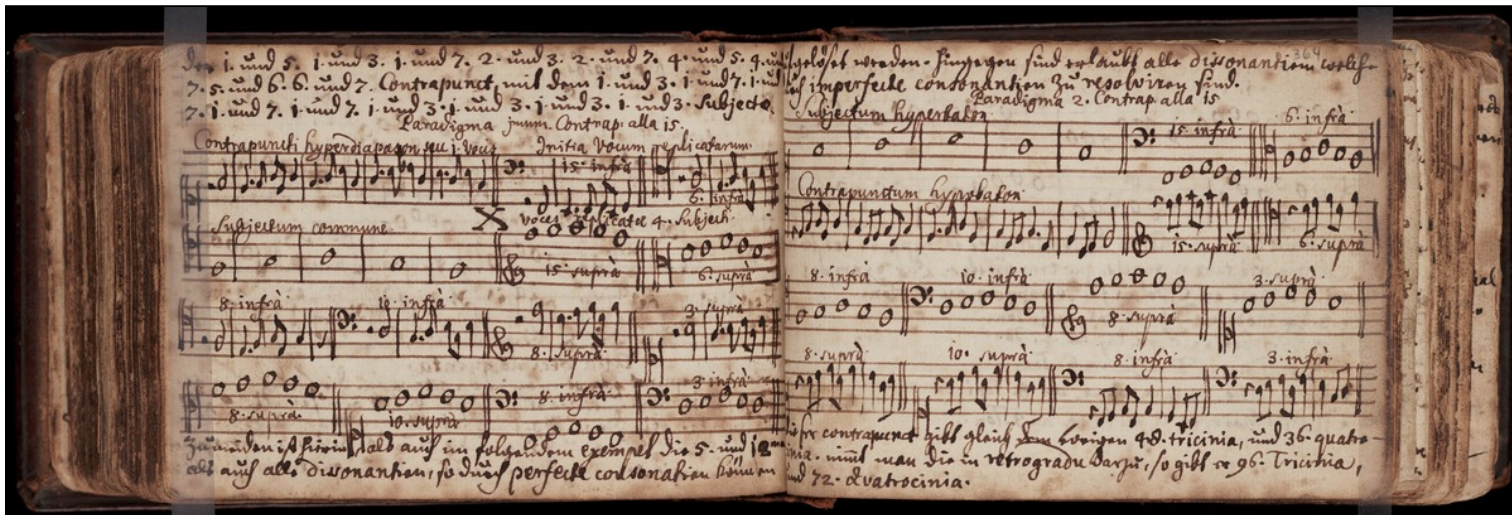 der 1. und 5. 1. und 3. 1. und 7. 2. und 3. 2. und 7. 4. und 5. 4. und
7. 5. und 6. 6. und 7. Contrapunct, mit dem 1. und 3. 1. und 7. 1. und
7. 1. und 7. 1. und 7. 1. und 3. 1. und 3. 1. und 3. 1. und 3. Subjecto.
Paradigma jmum. Contrap. alla 15.
Contrapuncti hyperdiapason seu 1. vocis
Initia vocum replicatarum.
15. infrà
6. infrà
Subjectum commune.
voces replicatae 4. Subjecti
15. suprà
6. suprà
8. infrà
10. infrà
8. suprà
3. suprà
8. suprà
10. suprà
8. infrà
3. infrà
Zu meiden ist hierin als auch im folgendem exempel die 5. und 12
als auch alle dissonantien, so durch perfecte consonantien können
364
gelöset werden. hingegen sind erlaubt alle dissonantien welche
imperfecte consonantien zu resolviren sind.
Paradigma 2. Contrap. alla 15
Subjectum hyperbaton.
15. infrà
6. infrà
Contrapunctum hyperbaton.
15. suprà
6. suprà
8. infrà
10. infrà
8. suprà
3. suprà
8. suprà
10. suprà
8. infrà
3. infrà
contrapunct gibt gleich vorigen 48. tricinia, und 36. quatro-
nimt man die in retrogradu darzu, so gibt er 96. Tricinia,
und 72. Quatrocinia.